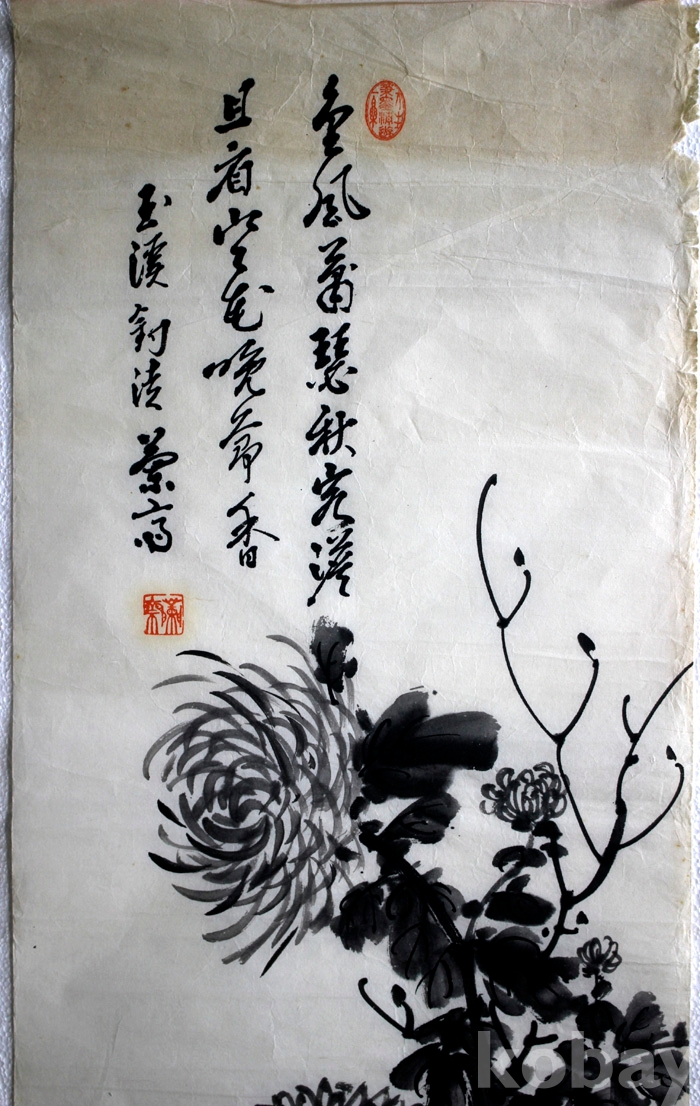 金風蕭瑟秋容淡
且看寒花晚節香
玉溪釣徒
kobay